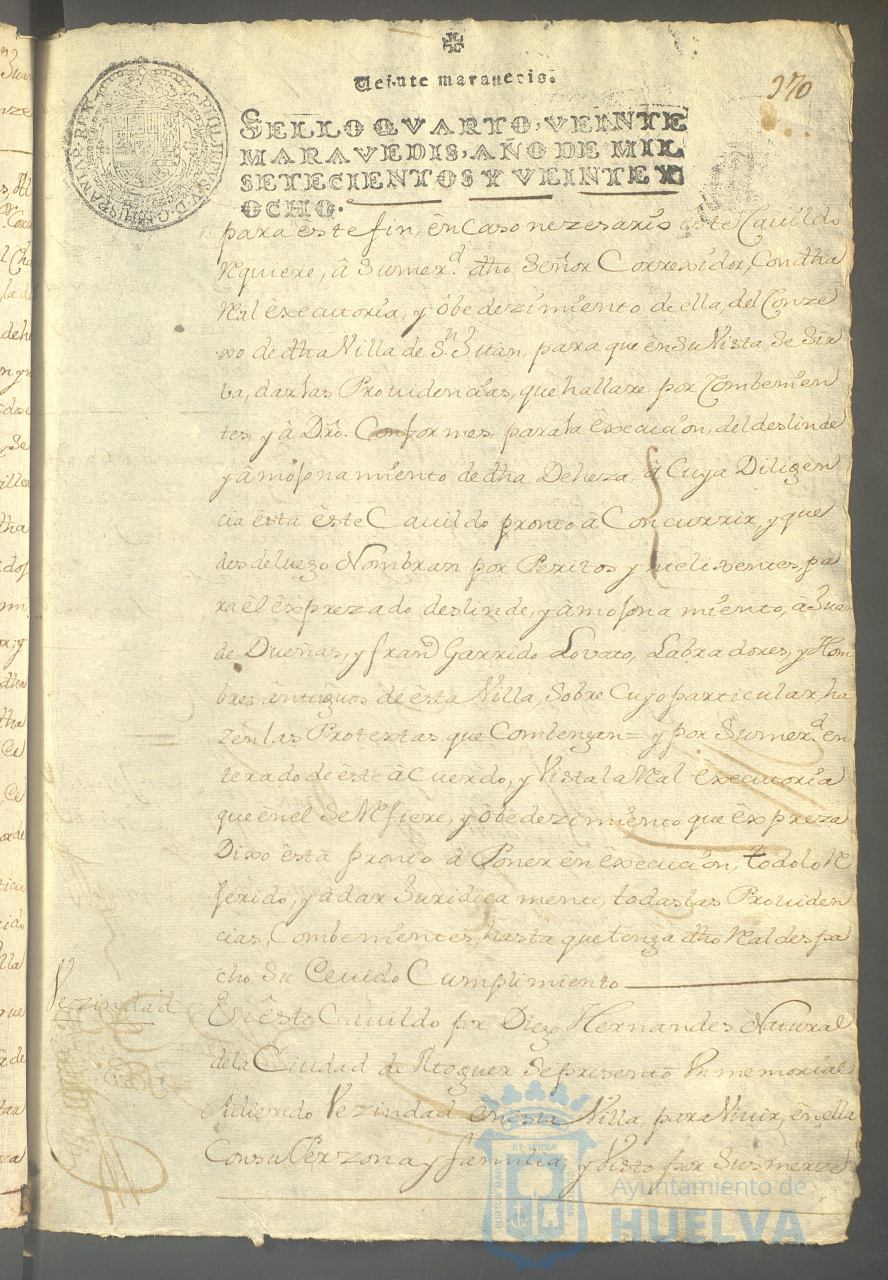 Veinte maravedis.
370
SELLO QVARTO, VEINTE
MARAVEDIS, AÑO DE MIL
SETECIENTOS Y VEINTE Y
OCHO.
para èste fin, èn Caso nezesario èste Cavildo
Rquiere, â Sumer.d dho Señor Correxidor, Con dha
Ral èxecutoria, y òbedezimiento de ella, del Conze
xo de dha Villa de S.n Juan, para que èn su Vista, Se Sir
ba, dar las Providencias, que hallare por Combenien
tes, y â Dro. Conformes, para la èxecucion, del deslinde
y âmojonamiento de dha Deheza, â Cuya Diligèn
cia èstà èste Cavildo pronto â Concurrir, y que
desde luego Nombran por Peritos y nteligentes, pa
ra èl èxprezado deslinde, y âmojonamiento, â Juan
de Dueñas, y fran.co Garrido Lovato, Labradores, y Hom
bres àntiguos de èsta Villa, Sobre Cuyo particular, ha
zen las Protextas que Combengan = y por Sumer.d en
terado de èste âCuerdo, y Vista la Ral èxecutoria
que ènel se Refiere, y òbedezimiento que èxpreza
Dixo èstà pronto â Poner èn èxecucion, todo lo R
ferido, y â dar Juridicamente, todas las Providen
cias, Combenientes, hasta que tenga dho Ral despa
cho Su Devido Cumplimiento
Vezindad
En èste Cavildo por Diego Hernandes Natural
dela Ciudad de Moguer Se presentò Un memorial
Pidiendo Vezindad en esta Villa, para Vivir, èn ella
Con su Perzona y familia; y Visto por Susmerze
Ayuntamiento de
HUELVA